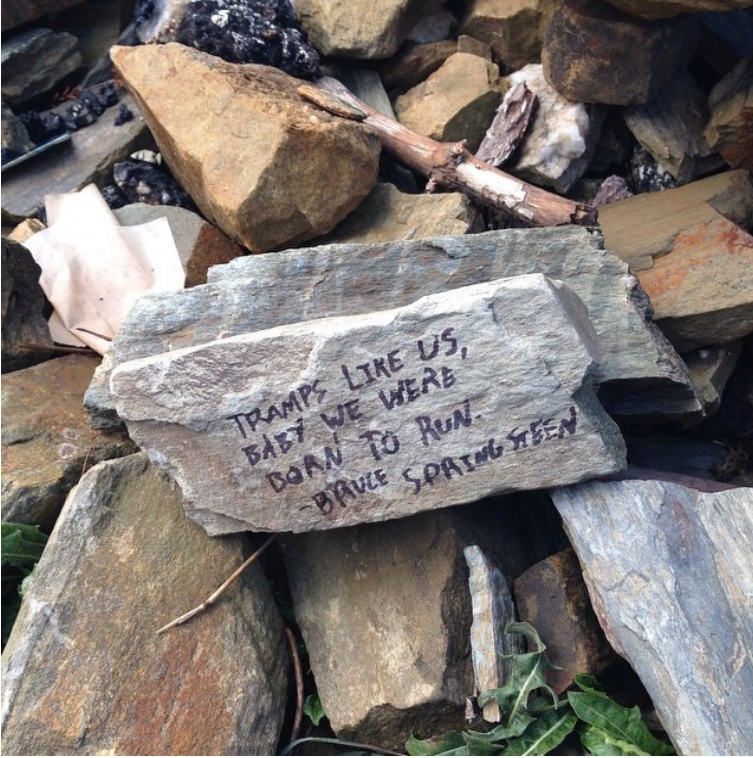 TRAMPS LIKE US,
BABY WE WERE
BORN TO RUN.
-BRUCE SPRINGSTEEN